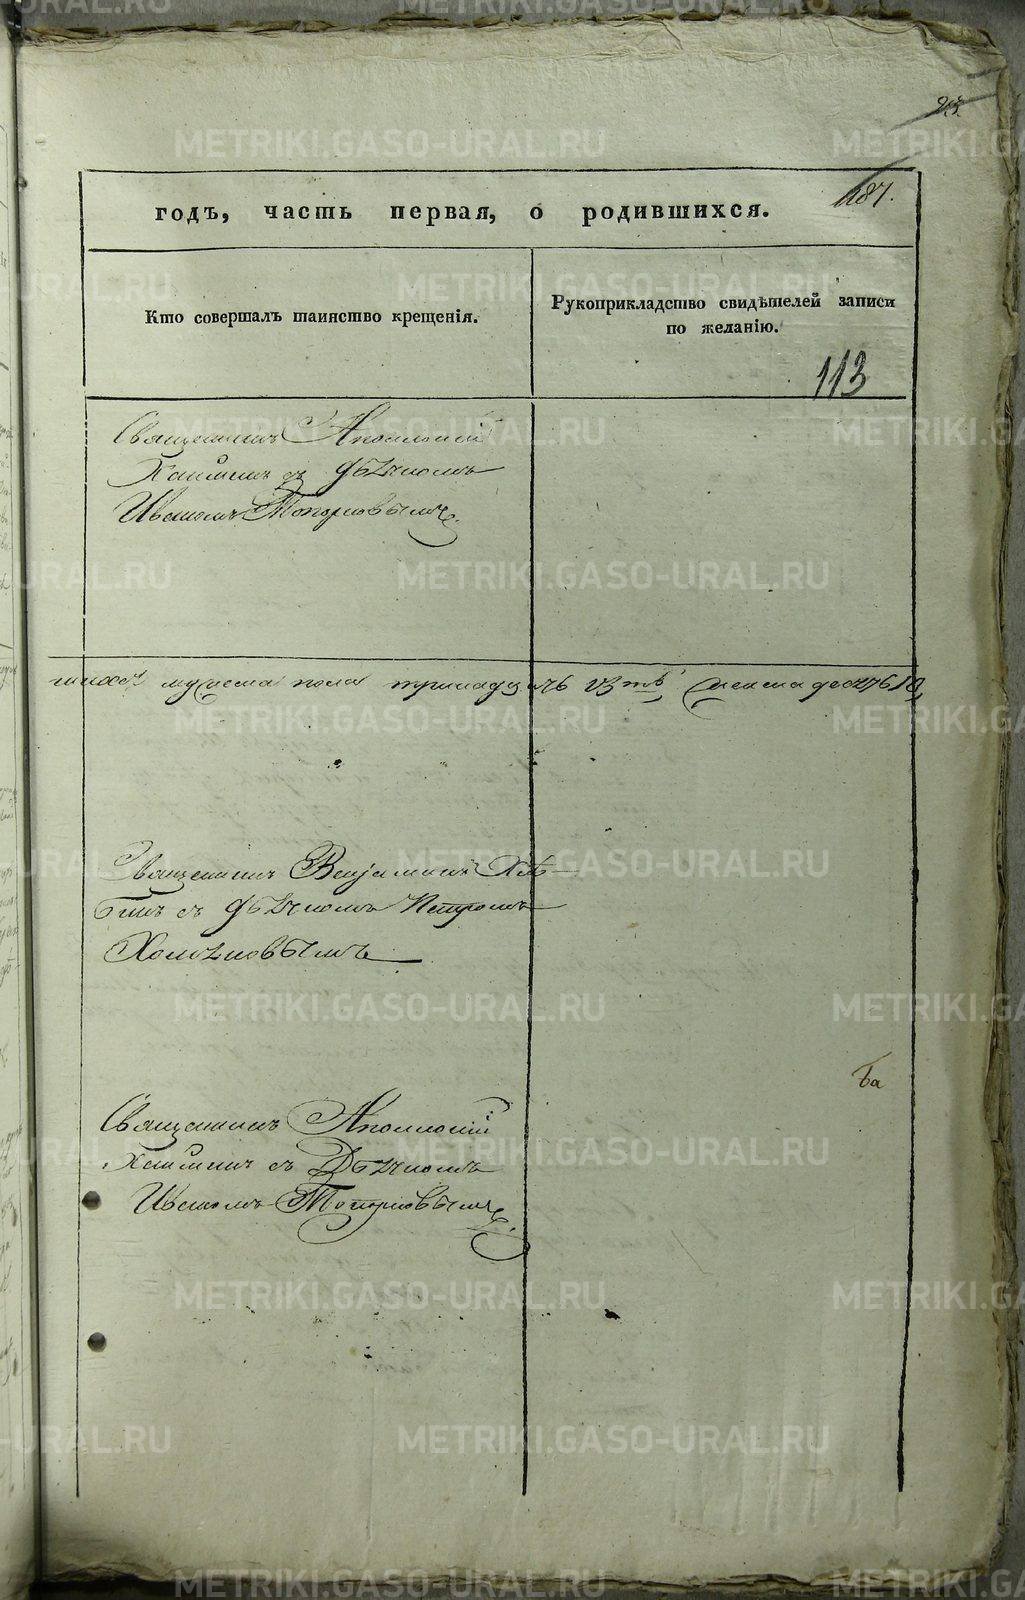 213.
187.
годъ, часть первая, о родившихся.
Кто совершалъ таинство крещенія.
Рукоприкладство свидѣтелей записи
по желанію.
113
Священникъ Аполлоній
съ дьячкомъ
Иваномъ Топорковымъ.
мужеска пола тринадцать женска десять
Священникъ Веніаминъ Хлѣ-
бинъ съ дьячкомъ Петромъ
Холмановымъ
Священникъ Аполлоній
съ Дьячкомъ
Иваномъ Топорковымъ.
METRIKI.GASO-URAL.RU